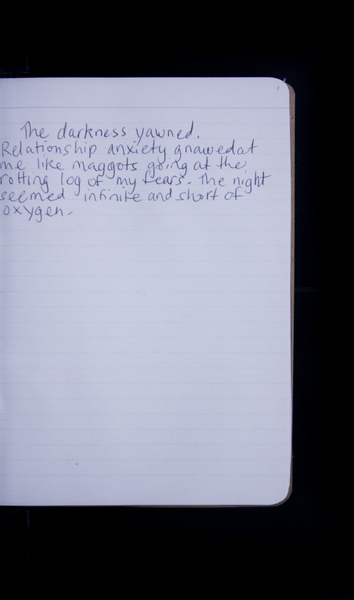 The darkness yawned.
Relationship anxiety gnawed at
me like maggots going at the
rotting log of my fears. The night
seemed infinite and short of
oxygen.